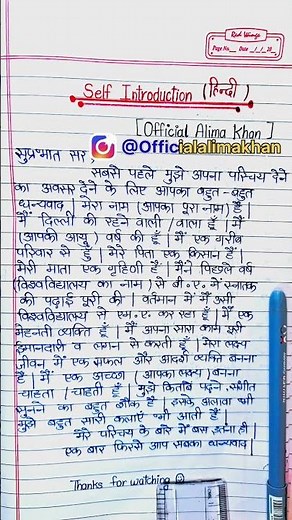 Red Wings
Page No. Date / / 20
Self Introduction (हिन्दी)
[Official Alima Khan]
@Officialalimakhan
सुप्रभात सर,
सबसे पहले मुझे अपना परिचय देने
का अवसर देने के लिए आपका बहुत-बहुत
धन्यवाद | मेरा नाम (आपका पूरा नाम) हैं |
मैं दिल्ली की रहने वाली / वाला हूँ | मैं
(आपकी आयु) वर्ष की हूँ | मैं एक गरीब
परिवार से हूँ | मेरे पिता एक किसान हैं |
मेरी माता एक गृहिणी हैं | मैंने पिछले वर्ष
(विश्वविद्यालय का नाम) से बी.ए. में स्नातक
की पढ़ाई पूरी की | वर्तमान में मैं उसी
विश्वविद्यालय से एम.ए. कर रहा हूँ | मैं एक
मेहनती व्यक्ति हूँ | मैं अपना सारा काम पूरी
ईमानदारी व लगन से करती हूँ | मेरा लक्ष्य
जीवन में एक सफल और आदर्श व्यक्ति बनना
है | मैं एक अच्छा (आपका लक्ष्य) बनना
चाहता (चाहती) हूँ | मुझे किताबें पढ़ने, संगीत
सुनने का बहुत शौक है | इसके अलावा भी
मुझे बहुत सारी कलाएँ भी आती हैं |
मेरे परिचय के बारे में बस इतना ही |
एक बार फिरसे आप सबका धन्यवाद |
Thanks for watching